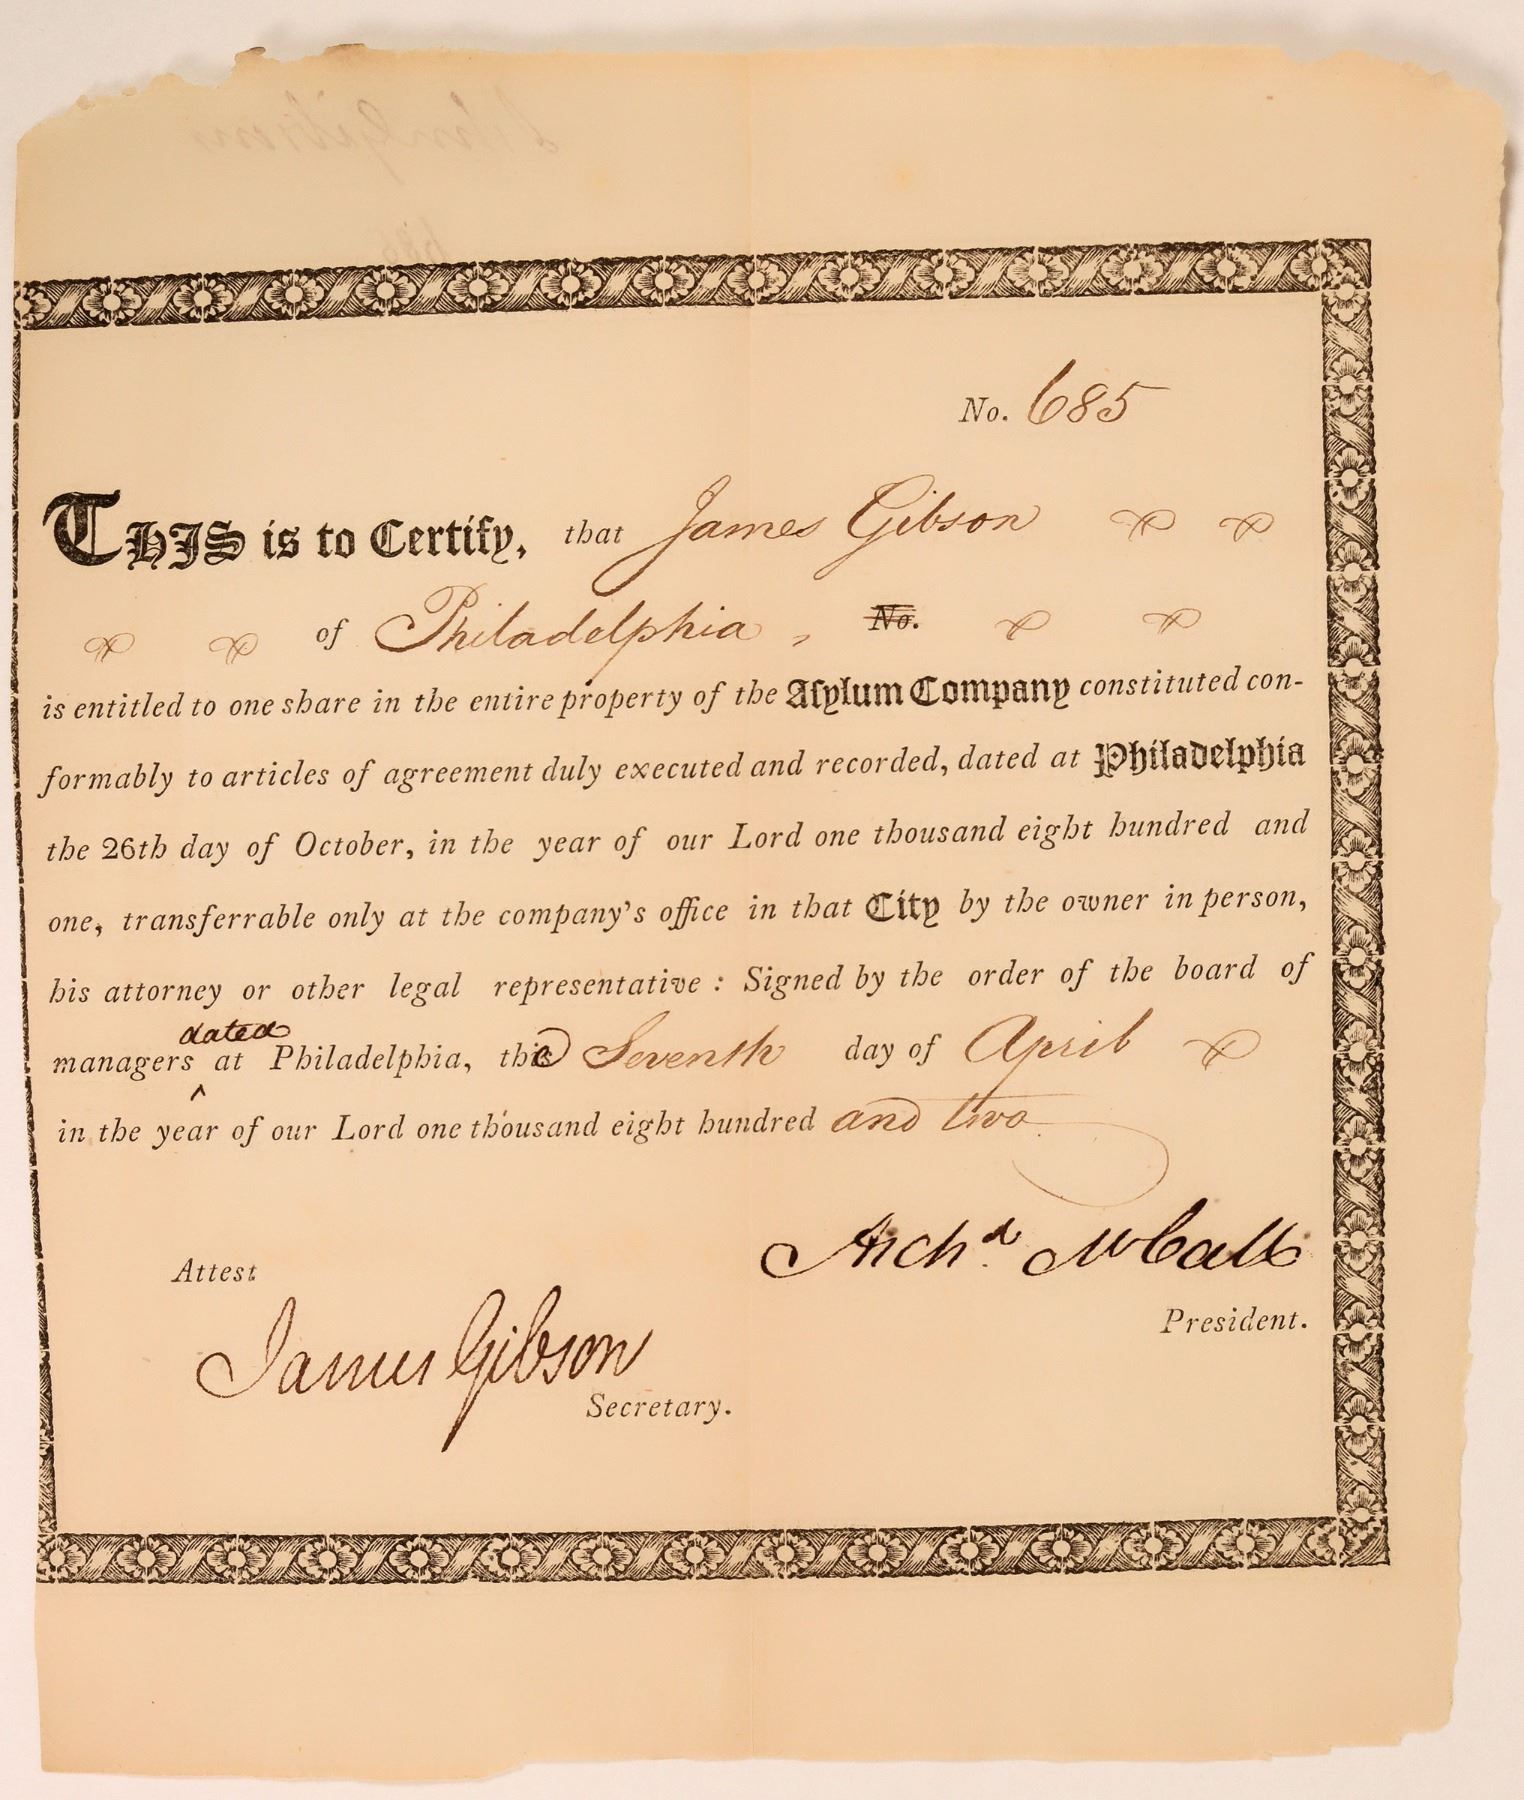 No. 685
THIS is to Certify, that James Gibson
of Philadelphia, No.
is entitled to one share in the entire property of the Asylum Company constituted con-
formably to articles of agreement duly executed and recorded, dated at Philadelphia
the 26th day of October, in the year of our Lord one thousand eight hundred and
one, transferrable only at the company's office in that City by the owner in person,
his attorney or other legal representative : Signed by the order of the board of
dated
managers ^ at Philadelphia, the Seventh day of April
in the year of our Lord one thousand eight hundred and two
Archd. McCall
Attest
President.
James Gibson
Secretary.